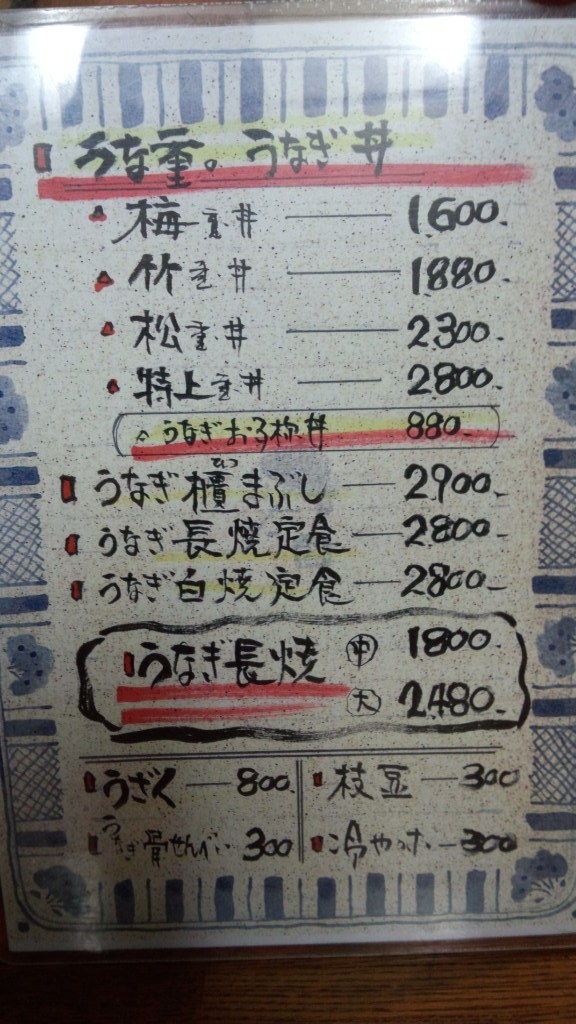 うな重。うなぎ丼
梅重丼 1,600.
竹重丼 1,880.
松重.丼 2,300.
特上重丼 2,800
うなぎお子様丼 880.
ひつ
うなぎ櫃まぶし 2,900.
うなぎ長焼定食 2,800
うなぎ白焼定食 2,800
うなぎ長焼 中 1,800
大 2,480.
うざく 800 枝豆 300
うなぎ骨せんべい 300 冷やっこ 300